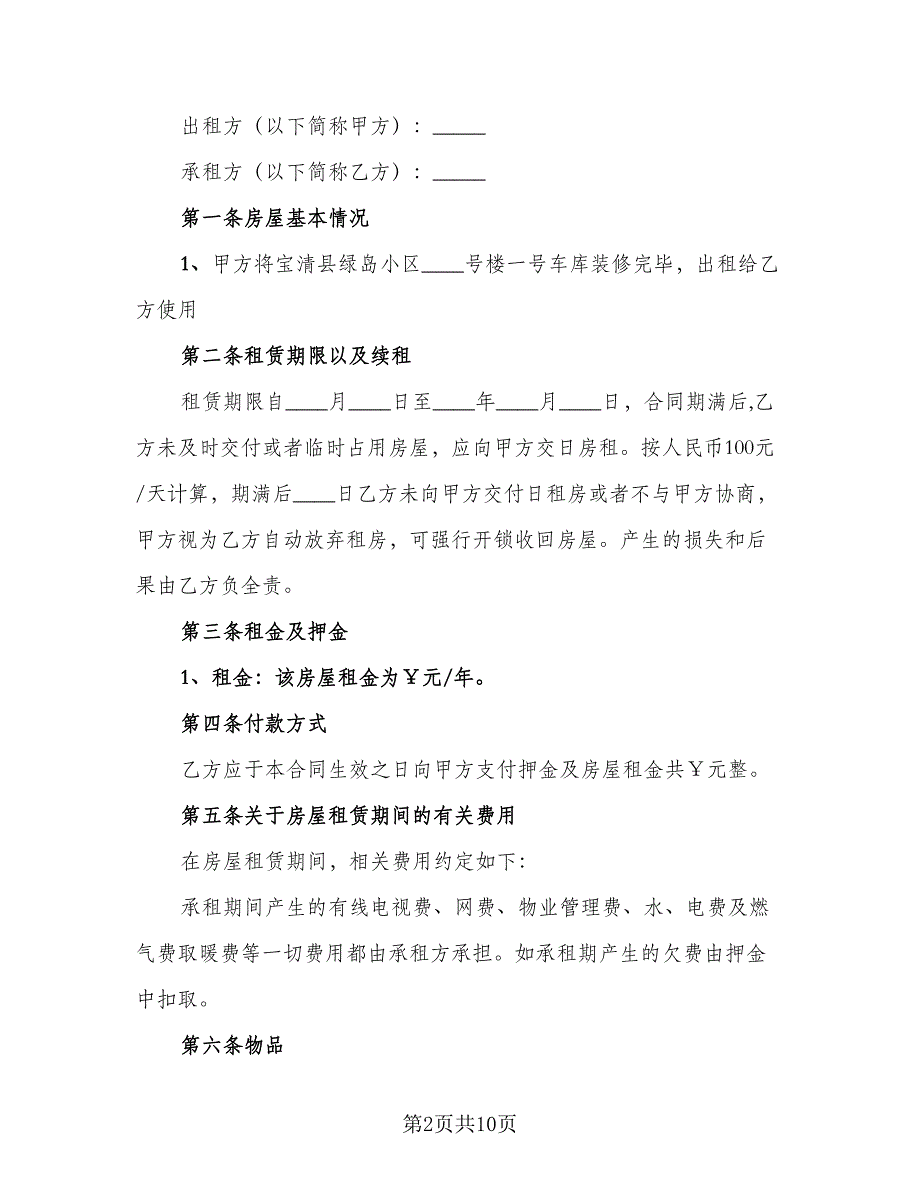 出租方（以下简称甲方）：_____
承租方（以下简称乙方）：_____
第一条房屋基本情况
1、甲方将宝清县绿岛小区____号楼一号车库装修完毕，出租给乙
方使用
第二条租赁期限以及续租
租赁期限自____月____日至____年____月____日，合同期满后,乙
方未及时交付或者临时占用房屋，应向甲方交日房租。按人民币100元
/天计算，期满后____日乙方未向甲方交付日租房或者不与甲方协商，
甲方视为乙方自动放弃租房，可强行开锁收回房屋。产生的损失和后
果由乙方负全责。
第三条租金及押金
1、租金：该房屋租金为￥元/年。
第四条付款方式
乙方应于本合同生效之日向甲方支付押金及房屋租金共￥元整。
第五条关于房屋租赁期间的有关费用
在房屋租赁期间，相关费用约定如下：
承租期间产生的有线电视费、网费、物业管理费、水、电费及燃
气费取暖费等一切费用都由承租方承担。如承租期产生的欠费由押金
中扣取。
第六条物品
第2页共10页